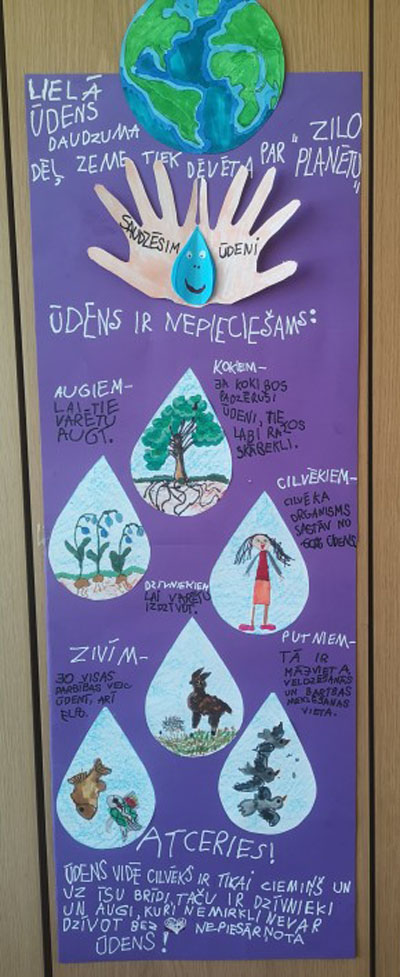 LIELĀ
ŪDENS
DAUDZUMA
DĒĻ ZEME TIEK DĒVĒTA PAR "ZILO
PLANĒTU"
SAUDZĒSIM ŪDENI
ŪDENS IR NEPIECIEŠAMS:
KOKIEM-
JA KOKI BŪS
PADZĒRUŠI
ŪDENI, TIE
LABI RAŽOS
SKĀBEKLI.
AUGIEM-
LAI TIE
VARĒTU
AUGT.
CILVĒKIEM-
CILVĒKA
ORGANISMS
SASTĀV NO
ŪDENS
DZĪVNIEKIEM
LAI VARĒTU
IZDZĪVOT.
PUTNIEM-
TĀ IR
MĀJVIETA,
VELDZĒŠANĀS
UN BARĪBAS
MEKLĒŠANAS
VIETA.
ZIVĪM-
JO VISAS
DARBĪBAS VEIC
ŪDENĪ, ARĪ
ELPO.
ATCERIES!
ŪDENS VIDĒ CILVĒKS IR TIKAI CIEMIŅŠ UN
UZ ĪSU BRĪDI, TAČU IR DZĪVNIEKI
UN AUGI, KURI NEMIRKLI NEVAR
DZĪVOT BEZ NEPIESĀRŅOTA
ŪDENS!